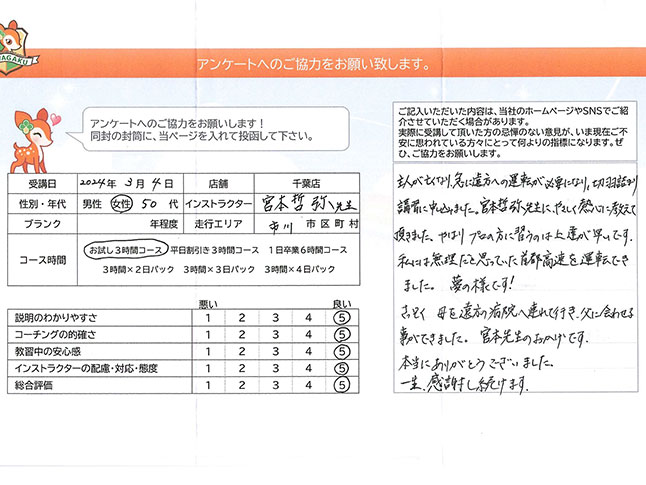 NAGAKU
アンケートへのご協力をお願い致します。
アンケートへのご協力をお願いします！
同封の封筒に、当ページを入れて投函して下さい。
受講日 2024年 3月 4日 店舗 千葉店
性別・年代 男性 女性 50 代 インストラクター 宮本哲弥先生
ブランク 年程度 走行エリア 市川 市区町村
コース時間 お試し3時間コース 平日割引き3時間コース 1日卒業6時間コース
3時間×2日パック 3時間×3日パック 3時間×4日パック
悪い 良い
説明のわかりやすさ 1 2 3 4 5
コーチングの的確さ 1 2 3 4 5
教習中の安心感 1 2 3 4 5
インストラクターの配慮・対応・態度 1 2 3 4 5
総合評価 1 2 3 4 5
ご記入いただいた内容は、当社のホームページやSNSでご紹
介させていただく場合があります。
実際に受講して頂いた方の忌憚のない意見が、いま現在ご不
安に思われている方々にとって何よりの指標になります。ぜ
ひ、ご協力をお願いします。
主人が亡くなり、急に遠方への運転が必要になり、切羽詰まり
講習に申込みました。宮本哲弥先生に、やさしく熱心に教えて
頂きました。やはりプロの方に習うのは上達が早いです。
私には無理だと思っていた首都高速を運転でき
ました。 夢の様です！
さっそく 母を遠方の病院へ連れて行き、父に合わせる
事ができました。宮本先生のおかげです。
本当にありがとうございました。
一生、感謝し続けます。